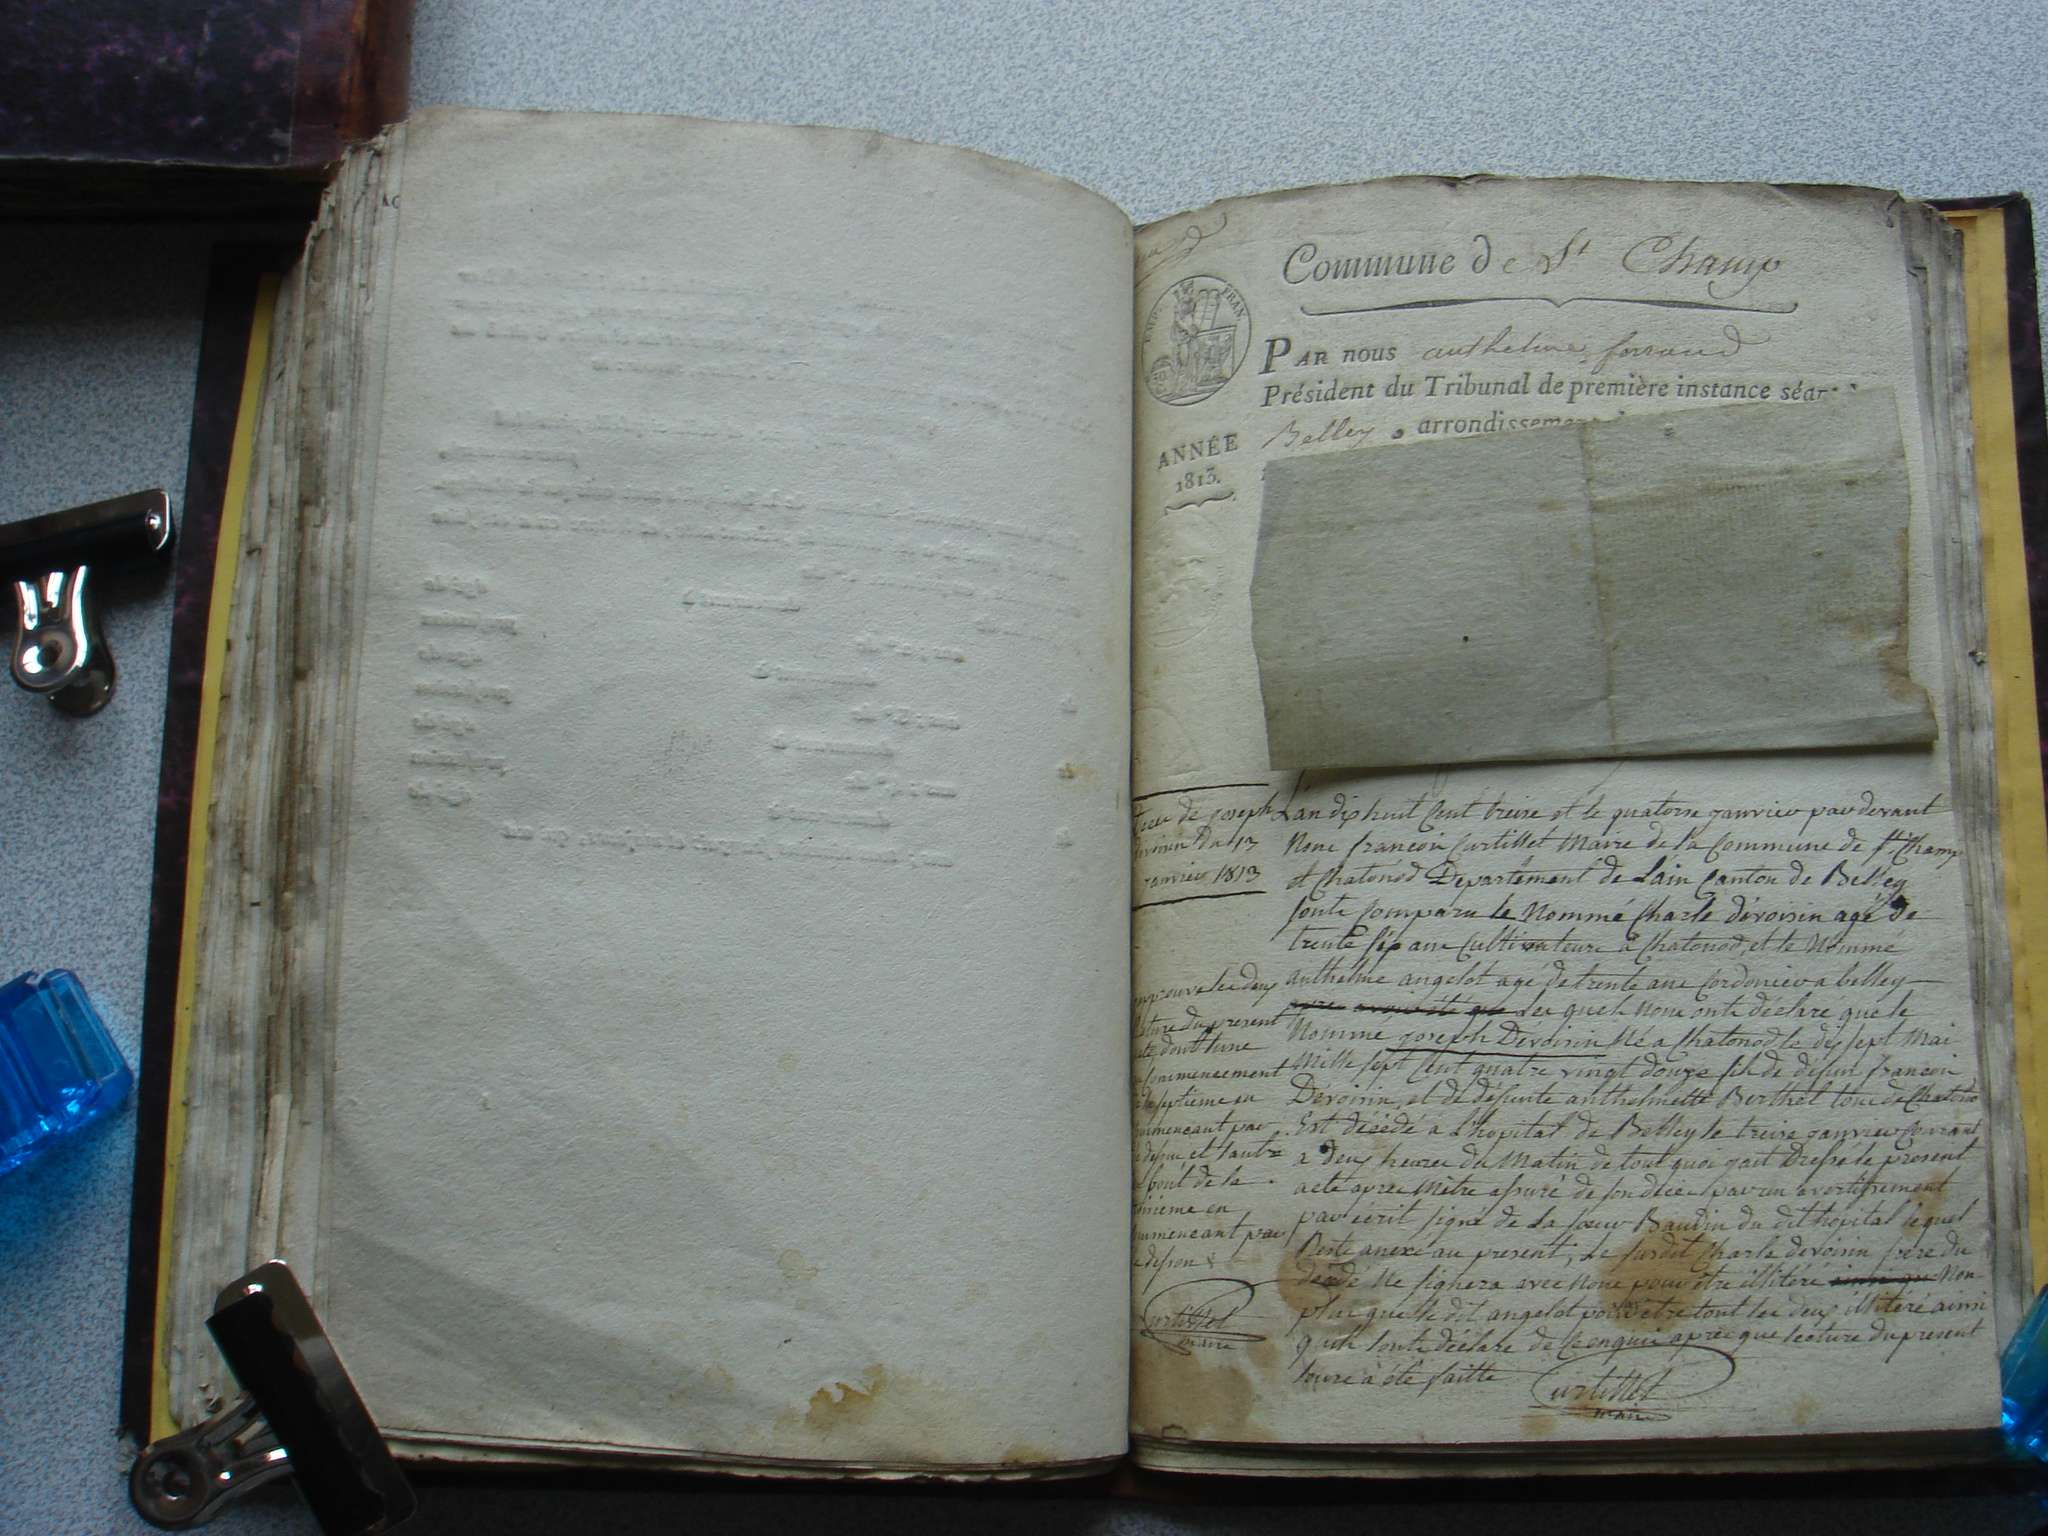 Commune de St Champ
EMP. FRAN.
PAR nous anthelme ferrand
Président du Tribunal de première instance séan
Belley, arrondissement
ANNÉE
1813.
Deces de joseph
devoisin Du 13
janvier 1813
L'an dix huit Cent treise et le quatorse janvier par devant
Nous francois Curtillet Maire de la Commune de St. Champ
et Chatonod Departement de Lain Canton de Belley
sont Comparu le Nommé Charle dévoisin agé de
trente six ans Cultivateure à Chatonod, et le Nommé
anthelme angelot agé de trente ans Cordonier a belley
apres avoir été que Les quels Nous onts déclaré que le
Nommé joseph Dévoisin Né a Chatonod le dix sept Mai
Mille sept Cent quatre vingt douze fils de défun francois
Dévoisin, et de défunte anthelmette Berthet tous de Chatonod
Est décédé a L'hopital de Belley le treise janvier Courant
a deux heures du Matin de tout quoi jait Dressé le present
acte apres Mêtre assuré de son déces par un avertissement
par ecrit signé de La soeur Baudin du dit hopital lequel
Reste anexé au present, Le susdit Charle devoisin frere du
décédé Ne signera avec Nous pour être illitéré ainsi que Non
plus que le dit angelot pour être tout les deux illitéré ainsi
quils l'onts déclare de Ce enquis apres que lecture du present
leurs à été faitte
Curtillet
maire
approuve les deux
Rature du present
acte dont l'une
au Commencement
de la septieme en
Commencant par
de défun et l'autre
au bout de la
Commencant par
Curtillet
maire